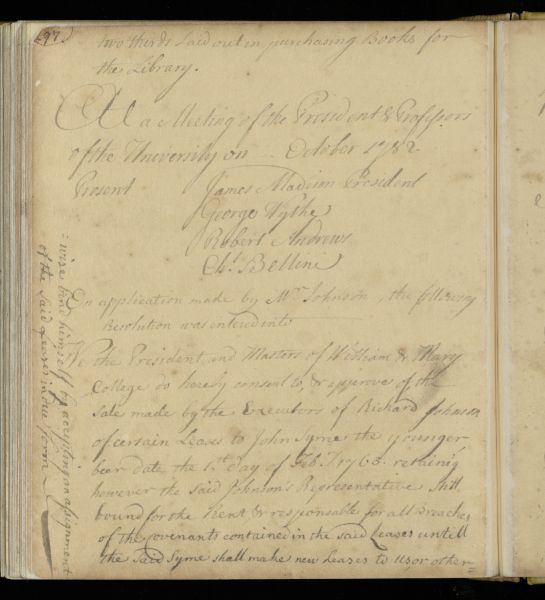 (97)
two thirds Laid out in purchasing Books for
the Library.
At a Meeting of the President & Professors
of the University on October 1782
Present James Madison President
George Wythe
Robert Andrews
Chs. Bellini
On application made by Mr. Johnson, the following
Resolution was entered into
We the President and Masters of William & Mary
College do hereby consent to, & approve of the
Sale made by the Executors of Richard Johnson
of certain Leases to John Syme the younger
bear date the 1st. Day of Feb. 1768. retaing
however the said Johnson's Representative still
bound for the Rent & responsable for all Breaches
of the covenants contained in the said Leases untill
the said Syme shall make new Leases to us, or other=
:wise bind himself by accepting an assignment
of the said Leases in due form